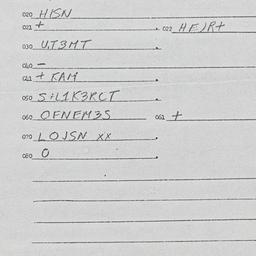 020 HISN
021 + 022 HEJR+
030 UT3MT
040 -
041 + KAM
050 S+L1K3RCT
060 OFNEM3S 061 +
070 LOJSN xx
080 O